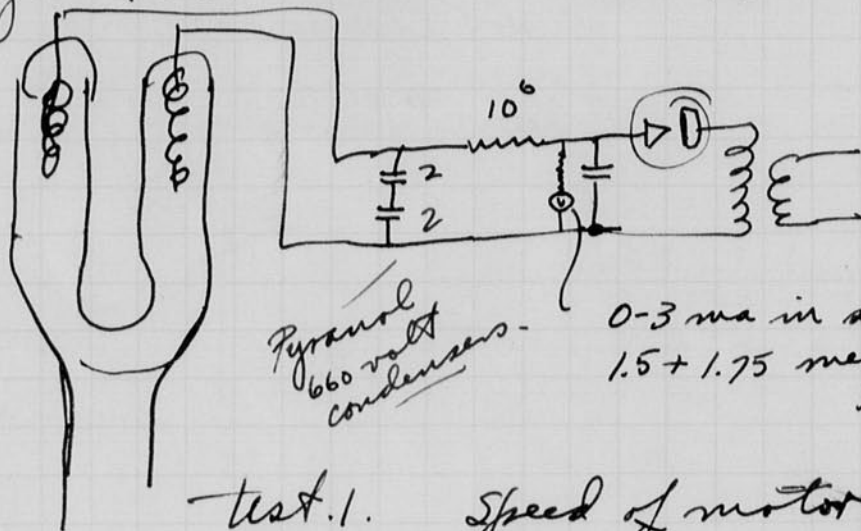 10⁶
2
2
Pyranol
660 volt
condensers-
0-3 ma in
1.5 + 1.75
test.1. Speed of motor